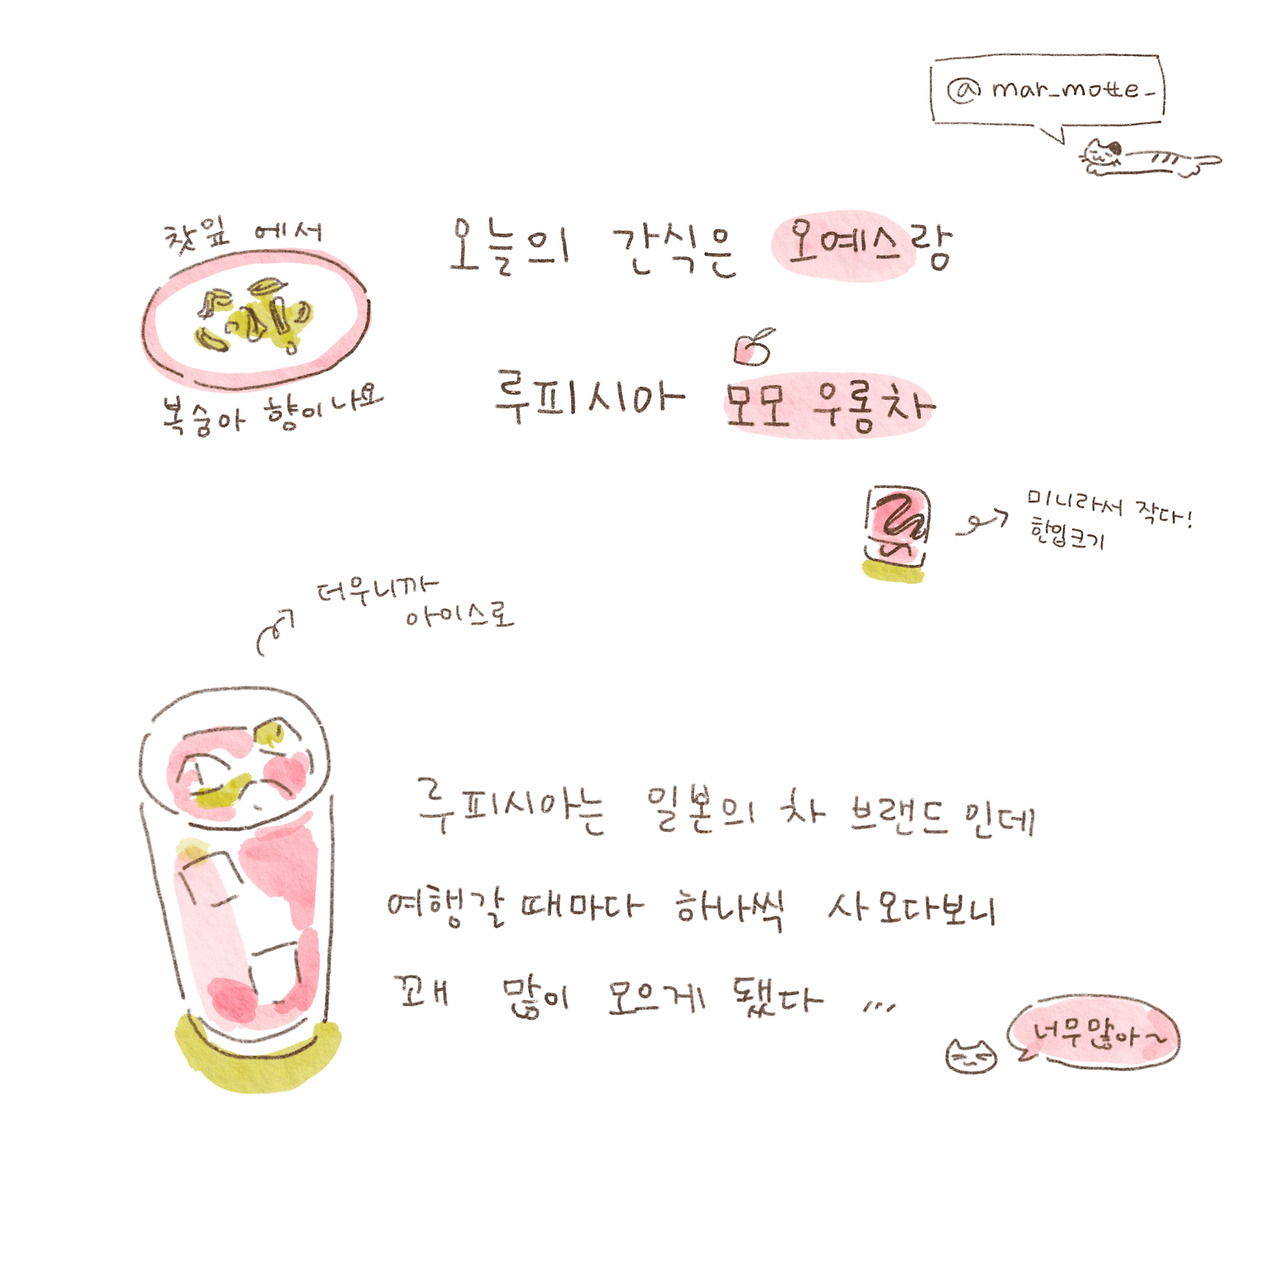 @mar_motte_
찻잎에서
오늘의 간식은 오예스랑
복숭아 향이나요
루피시아 모모 우롱차
미니라서 작다!
한입크기
더우니까
아이스로
루피시아는 일본의 차 브랜드인데
여행갈 때마다 하나씩 사오다보니
꽤 많이 모으게 됐다 ...
너무많아~